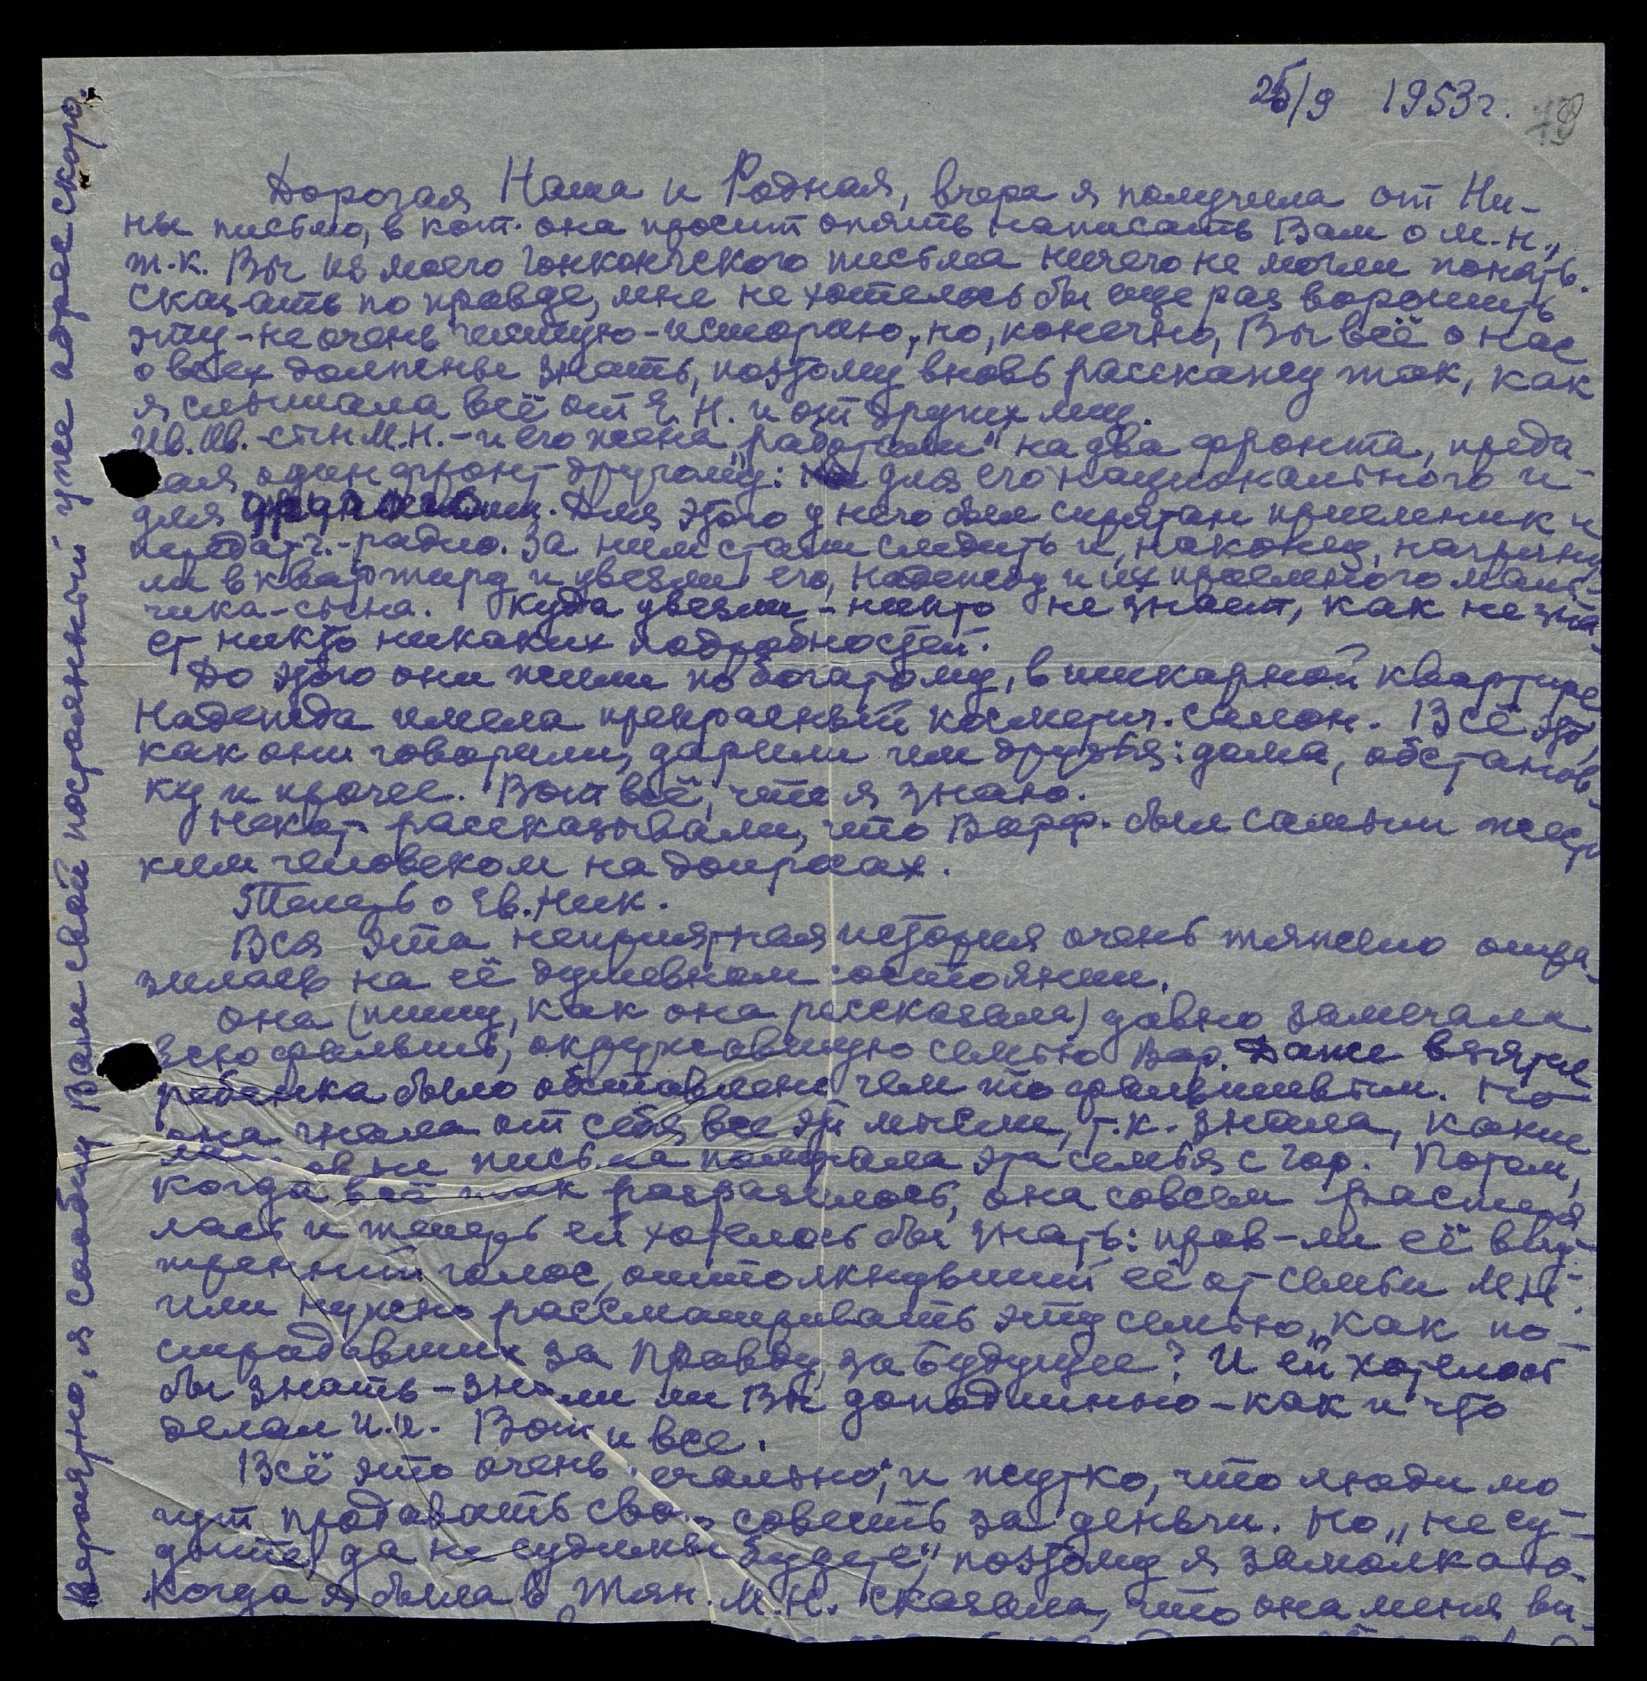 25/9 1953 г.
79
Дорогая Наша и Родная, вчера я получила от Ни-
ны письмо, в кот. она просит опять написать Вам о М.Н.,
т.к. Вы из моего Гонконгского письма ничего не могли понять.
Сказать по правде, мне не хотелось бы еще раз ворошить
эту - не очень чистую - историю, но, конечно, Вы всё о нас
о всех должны знать, поэтому вновь расскажу так, как
я слышала всё от Я. Н. и от других лиц.
Ив. Ив. - сын М.Н. - и его жена „работали" на два фронта, преда-
вая один фронт другому: для его национального и
для . Для этого у него был спрятан приемник и
передатч. - радио. За ним стали следить и, наконец, нагряну
ли в квартиру и увезли его, Надежду и их приемного маль-
чика-сына. Куда увезли - никто не знает, как не зна-
ет никто никаких подробностей.
До этого они жили по богатому, в шикарной квартире
Надежда имела прекрасный косметич. салон. Всё это,
как они говорили, дарили им друзья: дома, обстанов-
ку и прочее. Вот всё, что я знаю.
Некот. рассказывали, что Варф. был самым жест
ким человеком на допросах.
Теперь о Ев. Ник.
Вся эта неприятная история очень тяжело отра-
зилась на её душевном состоянии.
Она (пишу, как она рассказала) давно замечала
всю фальшь, окружавшую семью Вар. Даже взятие
ребенка было обставлено чем то фальшивым. Но
она гнала от себя все эти мысли, т.к. знала, какие
письма получала эта семья с Гор. Потом,
когда всё так разразилось, она совсем растеря
лась и теперь ей хотелось бы знать: прав-ли её вну-
тренний голос, оттолкнувший её от семьи М.Н.
или нужно рассматривать эту семью, „как по-
страдавших за Правду, за Будущее? И ей хотелось
бы знать - знали ли Вы доподлинно - как и что
делал И.И. Вот и все.
Всё это очень печально, и жутко, что люди мо
гут продавать свою совесть за деньги. Но „не су-
дите, да не судимы будете", поэтому я замолкаю.
Когда я была в Тян. М.Н. сказала, что она меня ви-
Вероятно, я сообщу Вам свой постоянный уже адрес скоро.